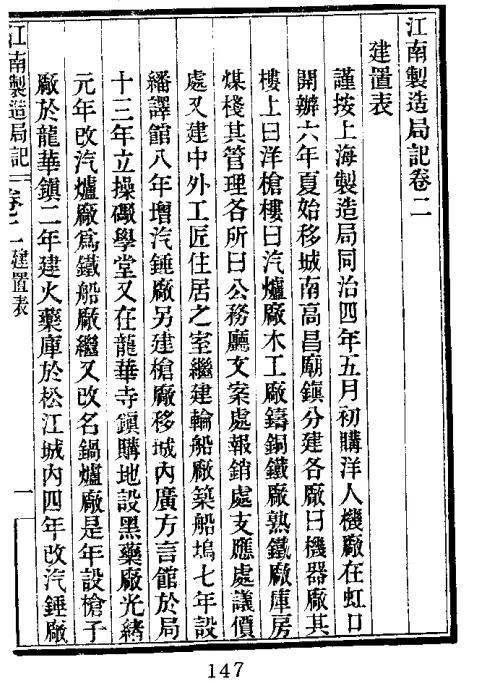 江南製造局記卷二
建置表
謹按上海製造局同治四年五月初購洋人機廠在虹口
開辦六年夏始移城南高昌廟鎮分建各廠曰機器廠其
樓上曰洋槍樓曰汽爐廠木工廠鑄銅鐵廠熟鐵廠庫房
煤棧其管理各所曰公務廳文案處報銷處支應處議價
處又建中外工匠住居之室繼建輪船廠築船塢七年設
繙譯館八年增汽錘廠另建槍廠移城內廣方言館於局
十三年立操礮學堂又在龍華寺鎮購地設黑藥廠光緒
元年改汽爐廠爲鐵船廠繼又改名鍋爐廠是年設槍子
廠於龍華鎮二年建火藥庫於松江城內四年改汽錘廠
江南製造局記
卷二建置表
一
147